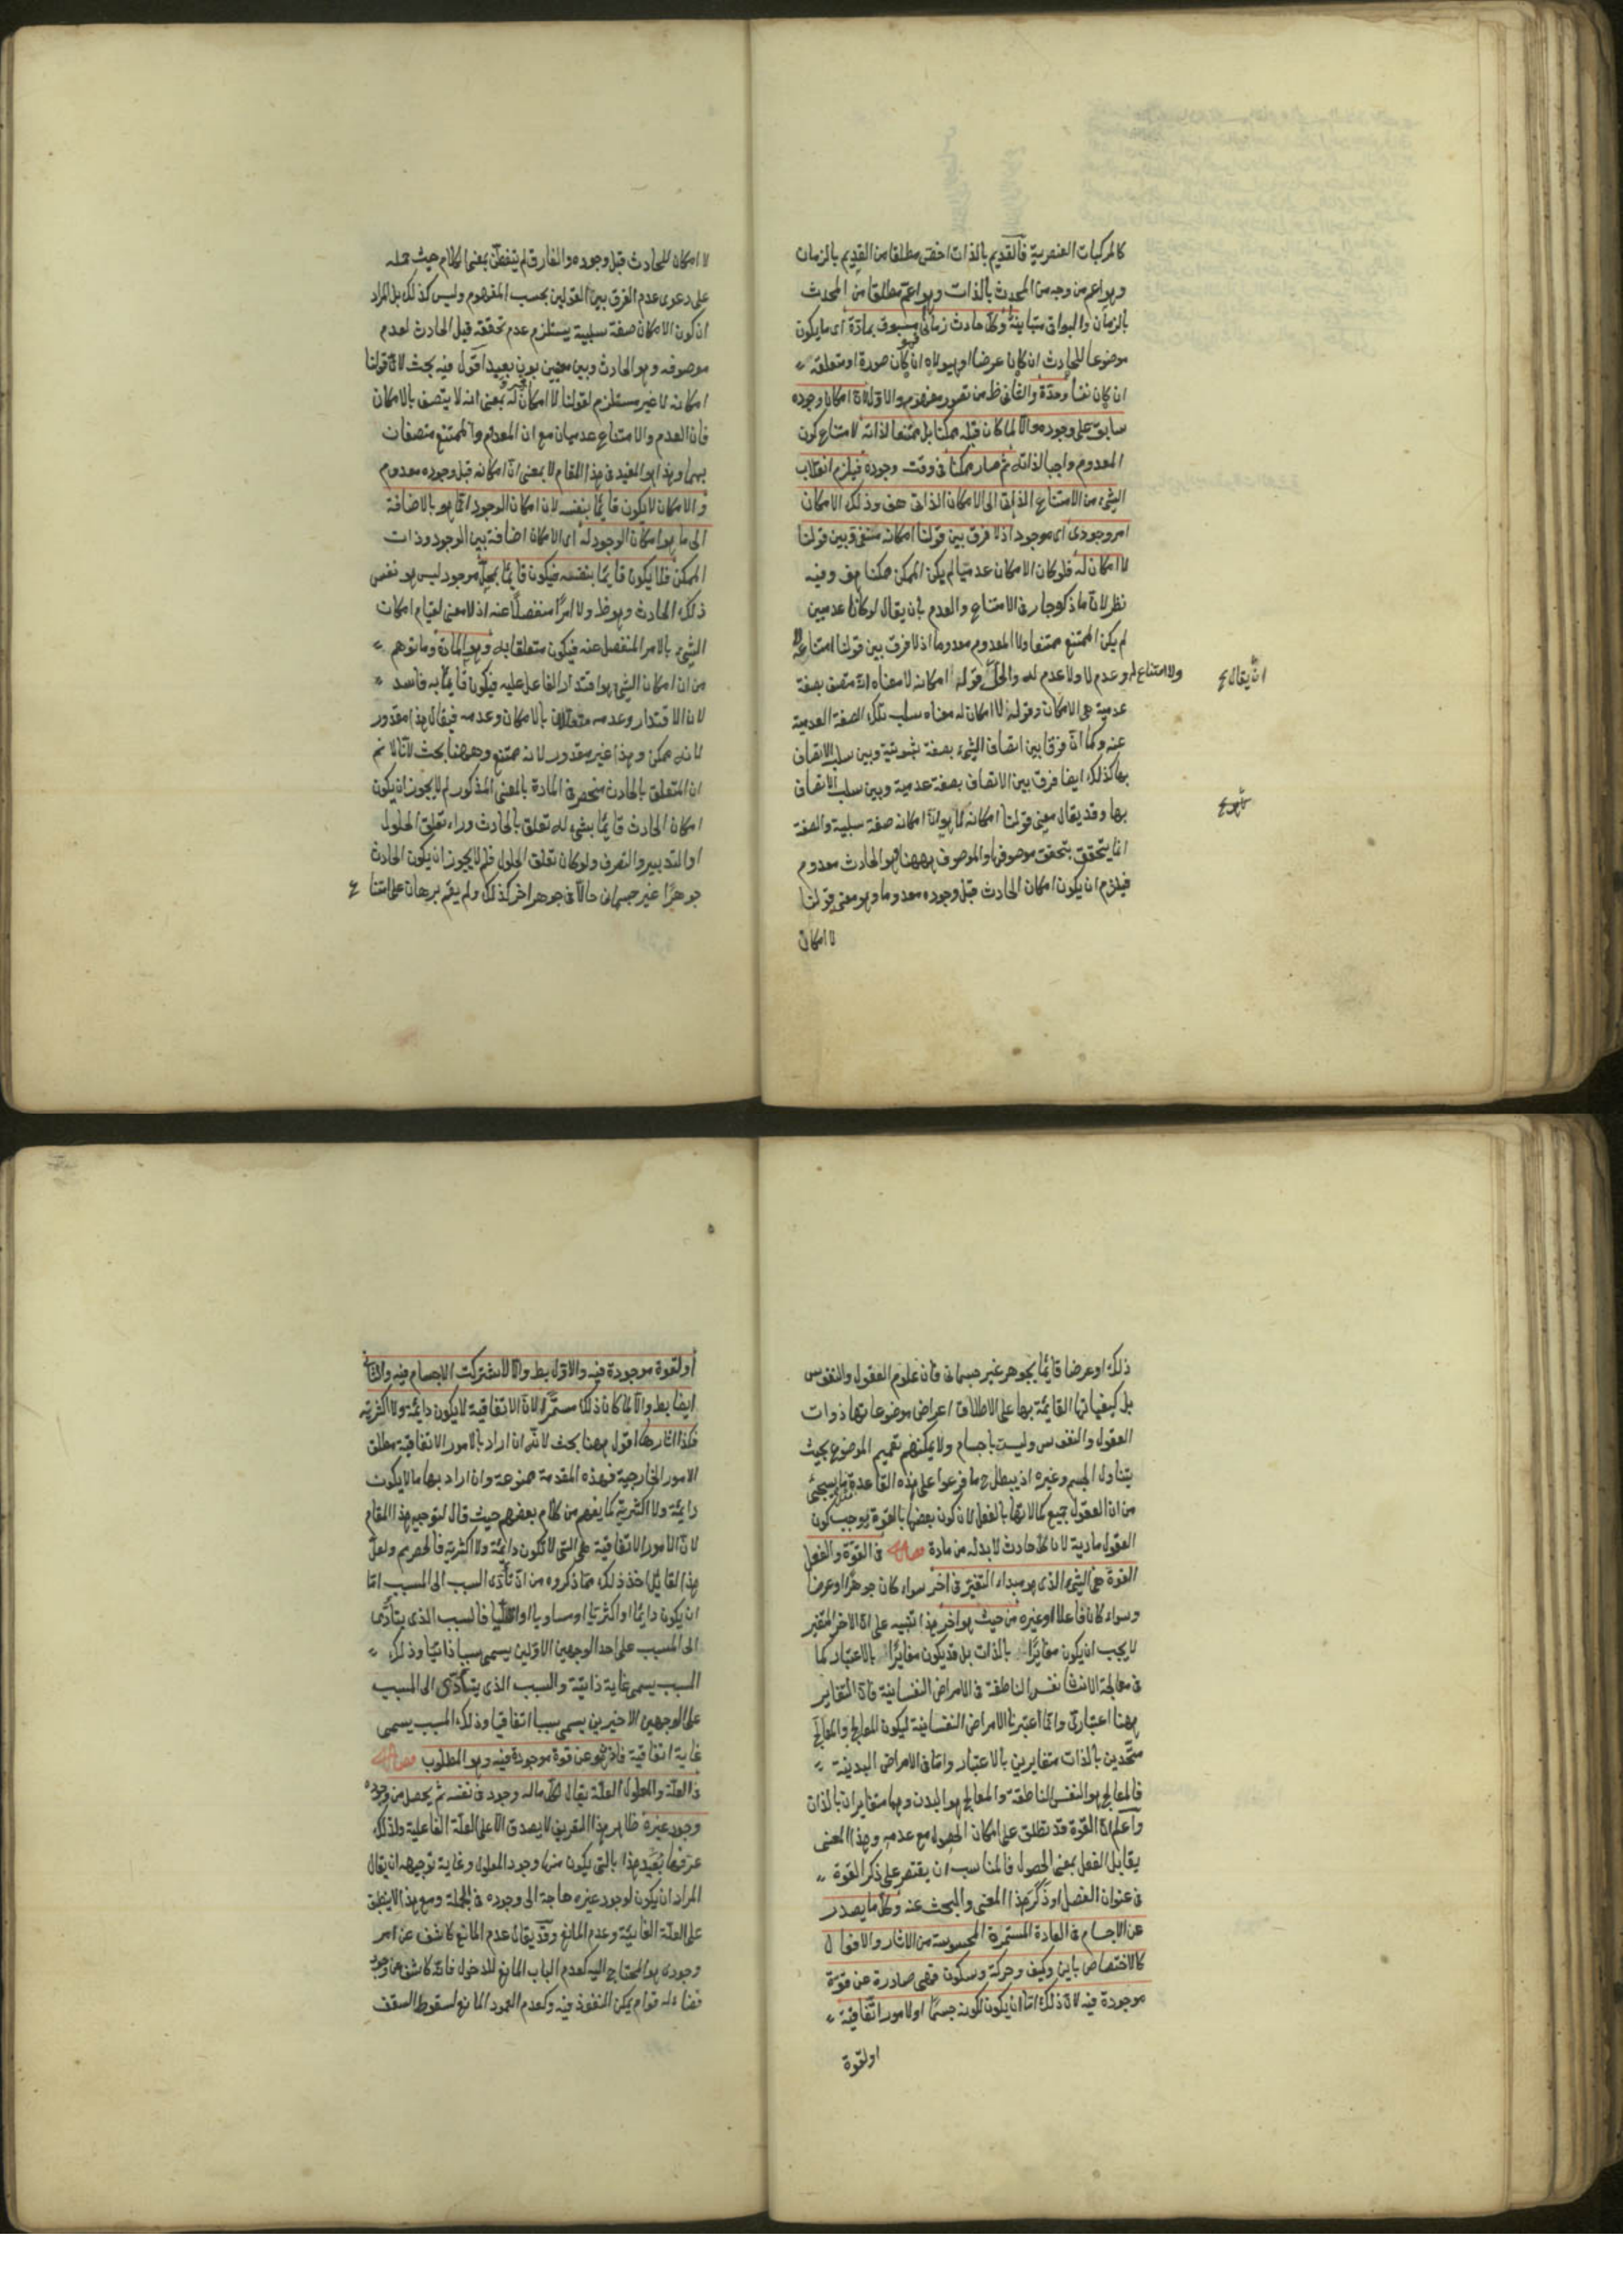 كالمركبات العنصرية فالقديم بالذات اخص مطلقا من القديم بالزمان
وهو اعم من وجه من المحدث بالذات وهو اعم مطلقا من المحدث
بالزمان والبواقى متباينة وكل حادث زمانى فهو مسبوق بمادة اى ما يكون
موضوعا للحادث ان كان عرضا او هيولاه ان كان صورة او متعلقه
ان كان نفسا ومدة والثانى ظ من تصور مفهوم والاول لان امكان وجوده
سابق على وجوده والا لما كان قبله ممكنا بل ممتنعا لذاته لامتناع كون
المعدوم واجبا لذاته ثم صار ممكنا فى وقت وجوده فيلزم انقلاب
الشىء من الامتناع الذاتى الى الامكان الذاتى هف وذلك الامكان
امر وجودى اى موجود اذ لا فرق بين قولنا امكانه منفى وبين قولنا
لا امكان له فلو كان الامكان عدميا لم يكن الممكن ممكنا هف وفيه
نظر لان ما ذكر جار فى الامتناع والعدم بان يقال لو كانا عدميين
لم يكن الممتنع ممتنعا ولا المعدوم معدوما اذ لا فرق بين قولنا امتناعه لا
ولا امتناع له وعدم لا ولا عدم له والحل قوله امكانه لا معناه انه متصف بصفة
ان يقال ع
عدمية هى الامكان وقوله لا امكان له معناه سلب تلك الصفة العدمية
عنه وكما ان فرقا بين اتصاف الشىء بصفة ثبوتية وبين سلب الاتصاف
بها كذلك ايضا فرق بين الاتصاف بصفة عدمية وبين سلب الاتصاف
بها وقد يقال معنى قولنا امكانه لا هو ان امكانه صفة سلبية والصفة
انما يتحقق بتحقق موصوفها والموصوف ههنا هو الحادث معدوم
فيلزم ان يكون امكان الحادث قبل وجوده معدوما وهو معنى قولنا
لا امكان
لا امكان للحادث قبل وجوده والفارق لم يتفطن بمعنى الكلام حيث حمله
على دعوى عدم الفرق بين القولين بحسب المفهوم وليس كذلك بل المراد
ان كون الامكان صفة سلبية يستلزم عدم تحققه قبل الحادث لعدم
موصوفه وهو الحادث وبين معنيين بون بعيد اقول فيه بحث لان قولنا
امكانه لا غير مستلزم لقولنا لا امكان له بمعنى انه لا يتصف بالامكان
فان العدم والامتناع عدميان مع ان المعدوم والممتنع متصفان
بهما وهذا هو المفيد فى هذا المقام لا بمعنى ان امكانه قبل وجوده معدوم
والامكان لا يكون قايما بنفسه لان امكان الوجود انما هو بالاضافة
الى ما هو امكان الوجود له اى الامكان اضافة بين الوجود وذات
الممكن فلا يكون قايما بنفسه فيكون قايما بمحل موجود ليس هو نفس
ذلك الحادث وهو ظ ولا امرا منفصلا عنه اذ لا معنى لقيام امكان
الشىء بالامر المنفصل عنه فيكون متعلقا به وهو المادة وما توهم
من ان امكان الشىء هو اقتدار الفاعل عليه فيكون قايما به فاسد
لان الاقتدار وعدمه متعللان بالامكان وعدمه فيقال هذا مقدور
لانه ممكن وهذا غير مقدور لانه ممتنع وههنا بحث لانا لا نم
ان المتعلق بالحادث منحصر فى المادة بالمعنى المذكور لم لا يجوز ان يكون
امكان الحادث قايما بشىء له تعلق بالحادث وراء تعلق الحلول
او التدبير والتصرف ولو كان تعلق الحلول فلم لا يجوز ان يكون الحادث
جوهرا غير جسمانى حالا فى جوهر اخر كذلك ولم يقم برهان على امتناع
ذلك او عرضا قايما بجوهر غير جسمانى فان علوم العقول والنفوس
بل كيفياتها القايمة بها على الاطلاق اعراض موضوعاتها ذوات
العقول والنفوس وليست باجسام ولا يمكنهم تعميم الموضوع بحيث
يتناول الجسم وغيره اذ يبطل ح ما فرعوا على هذه القاعدة كما سيجئ
من ان العقول جميع كمالاتها بالفعل لان كون بعضها بالقوة يوجب كون
العقول مادية لان كل حادث لا بد له من مادة فصل فى القوة والفعل
القوة هى الشىء الذى هو مبداء التغير فى اخر سواء كان جوهرا او عرضا
وسواء كان فاعلا او غيره من حيث هو اخر هذا تنبيه على ان الاخر المتغير
لا يجب ان يكون مغايرا بالذات بل قد يكون مغايرا بالاعتبار كما
فى معالجة الانسان نفسه الناطقة فى الامراض النفسانية فان التغاير
ههنا اعتبارى وانما اعتبرنا الامراض النفسانية ليكون المعالج والمعالج
متحدين بالذات متغايرين بالاعتبار واما فى الامراض البدنية
فالمعالج هو النفس الناطقة والمعالج هو البدن وهما متغايران بالذات
واعلم ان القوة قد تطلق على امكان الحصول مع عدمه وهذا المعنى
يقابل الفعل بمعنى الحصول فالمناسب ان يقتصر على ذكر القوة
فى عنوان الفصل او ذكر هذا المعنى والبحث عنه وكل ما يصدر
عن الاجسام فى العادة المستمرة المحسوسة من الاثار والافعال
كالاختصاص باين وكيف وحركة وسكون فهى صادرة عن قوة
موجودة فيه لان ذلك اما ان يكون لكونه جسما او لامور اتفاقية
او لقوة
او لقوة موجودة فيه والاول بط والا لاشتركت الاجسام فيه والثانى
ايضا بط والا لما كان ذلك مستمرا لان الاتفاقية لا يكون دايمة ولا اكثرية
فكذا اثارها اقول ههنا بحث لانه ان اراد بالامور الاتفاقية مطلق
الامور الخارجية فهذه المقدمة ممنوعة وان اراد بها ما لا يكون
دايمة ولا اكثرية كما يفهم من كلام بعضهم حيث قال لتوجيه هذا المقام
لان الامور الاتفاقية هى التى لا تكون دايمة ولا اكثرية فالحصر مم ولعل
هذا القائل اخذ ذلك مما ذكروه من ان تأدى السبب الى المسبب اما
ان يكون دايما او اكثريا او مساويا او اقليا فالسبب الذى يتأدى
الى المسبب على احد الوجهين الاولين يسمى سببا ذاتيا وذلك
المسبب يسمى غاية ذاتية والسبب الذى يتأدى الى المسبب
على الوجهين الاخيرين يسمى سببا اتفاقيا وذلك المسبب يسمى
غاية اتفاقية فاذن هو عن قوة موجودة فيه وهو المطلوب فصل
فى العلة والمعلول العلة يقال لكل ما له وجود فى نفسه ثم يحصل من وجوده
وجود غيره ظاهر هذا التعريف لا يصدق الا على العلة الفاعلية ولذلك
عرفها بعيد هذا بالتى يكون منها وجود المعلول وغاية توجيهه ان يقال
المراد ان يكون لوجود غيره حاجة الى وجوده فى الجملة ومع هذا لا ينطبق
على العلة الغائية وعدم المانع وقد يقال عدم المانع كاشف عن امر
وجودى هو المحتاج اليه كعدم الباب المانع للدخول فانه كاشف عن وجود
فضاء له قوام يمكن النفوذ فيه وكعدم العمود المانع لسقوط السقف